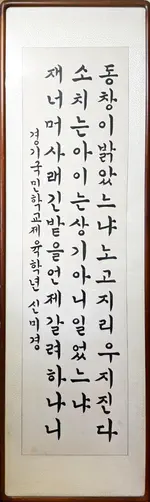 동창이 밝았느냐 노고지리 우지진다
소치는 아이는 상기 아니 일었느냐
재 너머 사래 긴 밭을 언제 갈려 하나니
경기국민학교 제 육학년 신미경